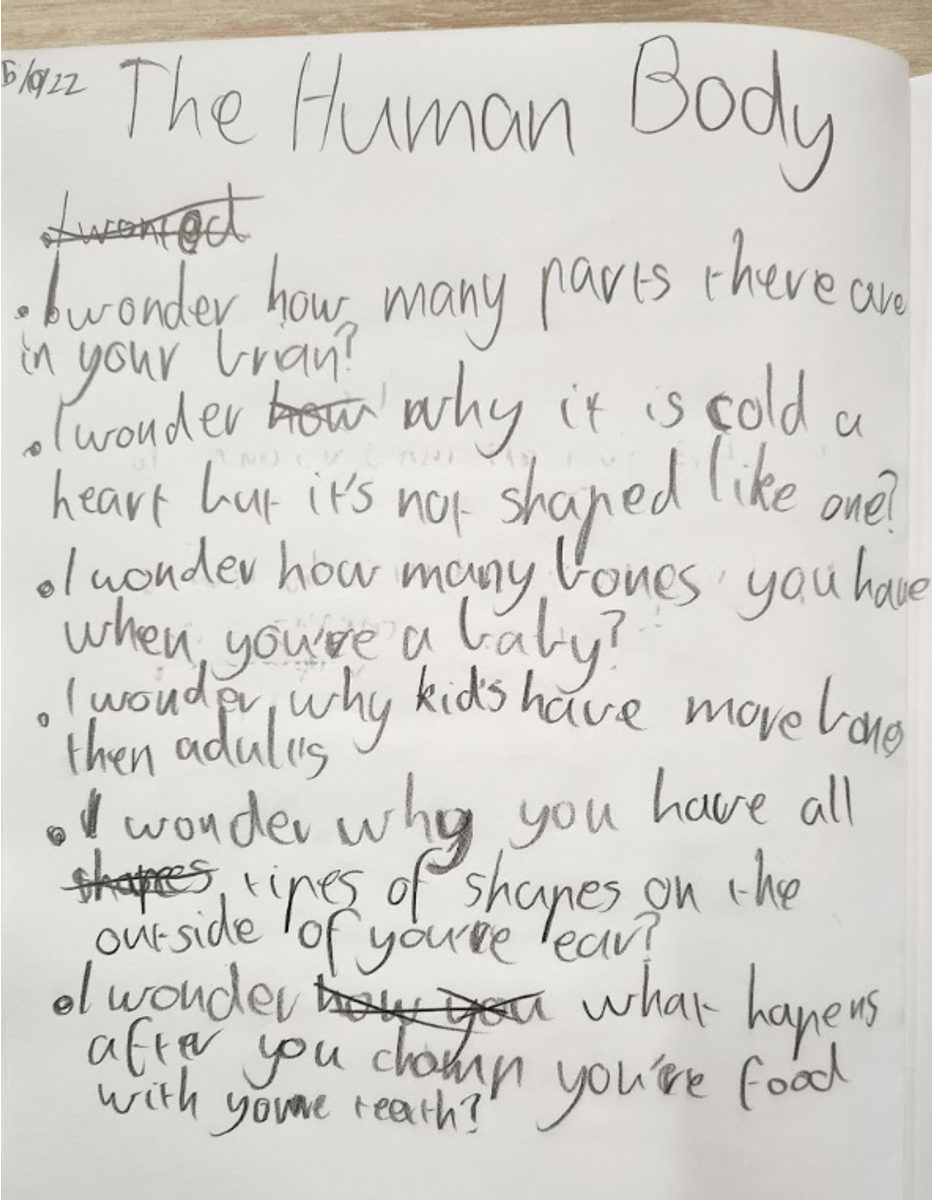 The Human Body
• I wonder how many parts there are
in your brian?
• I wonder how why it is cold a
heart but it's not shaped like one?
• I wonder how many bones you have
when you're a baby?
• I wonder why kid's have more bones
then adults
• I wonder why you have all
shapes tipes of shapes on the
outside of you're ear?
• I wonder how you what hapens
after you chomp you're food
with youre teeth?